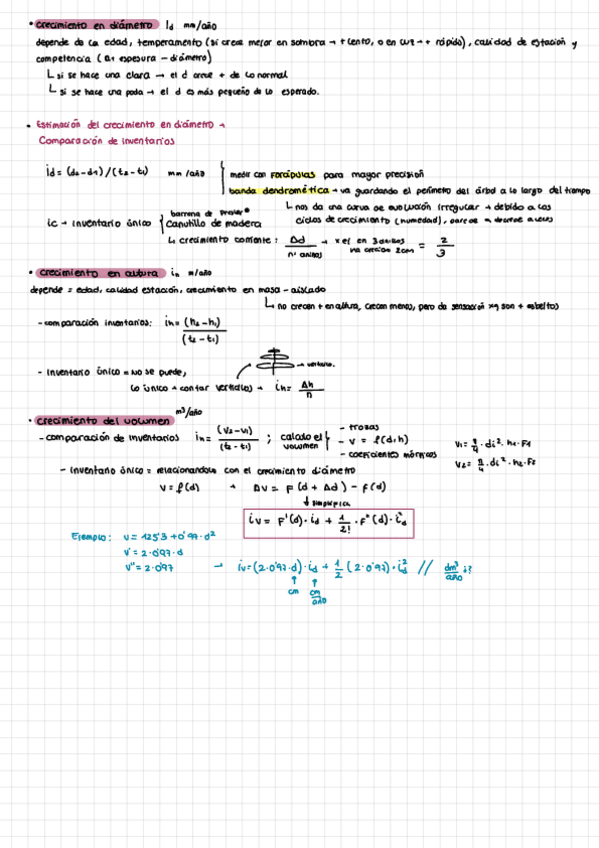 • crecimiento en diámetro id mm/año
depende de la edad, temperamento (si crece mejor en sombra → + lento, o en luz → + rápido), calidad de estación y
competencia (a + espesura - diámetro)
↳ si se hace una clara → el d crece + de lo normal
↳ si se hace una poda → el d es más pequeño de lo esperado.
• Estimación del crecimiento en diámetro →
Comparación de inventarios
id = (d2-d1)/(t2-t1) mm/año
medir con forcípulas para mayor precisión
banda dendrométrica → va guardando el perímetro del árbol a lo largo del tiempo
↳ nos da una curva de evolución irregular → debido a los
ciclos de crecimiento (humedad), crece → decrece
ic → inventario único { barrena de Pressler
canutillo de madera
↳ crecimiento corriente : Δd / nº anillos → x ej en 3 anillos ha crecido 2cm = 2/3
• crecimiento en altura in m/año
depende = edad, calidad estación, crecimiento en masa - aislado
↳ no crecen + en altura, crecen menos, pero da sensación xq son + esbeltos
- comparación inventarios: in = (h2-h1) / (t2-t1)
- inventario único = No se puede,
→ verticilo.
lo único → contar verticilos → in = Δh / n
• crecimiento del volumen m³/año
- comparación de inventarios in = (v2-v1) / (t2-t1) ; calculo el volumen
- trozas
- v = f(d,h)
- coeficientes mórficos
v1 = π/4 · d1² · h1 · F1
v2 = π/4 · d2² · h2 · F2
- inventario único = relacionandola con el crecimiento diámetro
v = f(d) → Δv = F(d + Δd) - f(d)
↓ simplifica
iv = F'(d) · id + 1/2! · F''(d) · id²
Ejemplo: v = 125'3 + 0'97 · d²
v' = 2 · 0'97 · d
v'' = 2 · 0'97 → iv = (2·0'97·d) · id + 1/2 (2·0'97) · id² // dm³/año ¿?
↑ cm ↑ cm/año